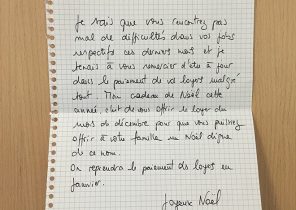 Je sais que vous rencontrez pas
mal de difficultés dans vos jobs
respectifs ces derniers mois et je
tenais à vous remercier d'être à jour
dans le paiement de vos loyers malgré
tout. Mon cadeau de Noël cette
année, c'est de vous offrir le loyer du
mois de décembre pour que vous puissiez
offrir à votre famille un Noël digne
de ce nom.
On reprendra le paiement des loyers en
janvier.
Joyeux Noël